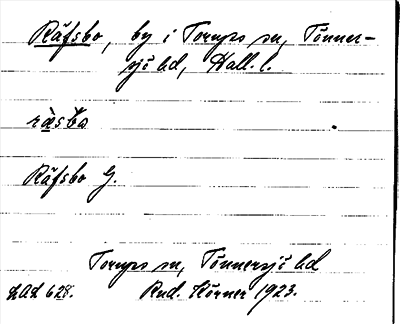 Räfsbo, by i Torups sn, Tönner-
sjö hd, Hall. l.
ràsbo
Räfsbo G.
Torups sn, Tönnersjö hd
LAL 628. Rud. Körner 1923.